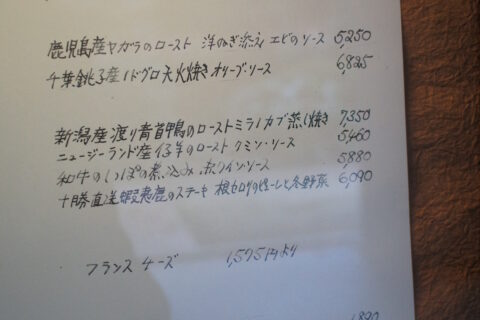 鹿児島産ヤガラのロースト 洋ねぎ添え エビのソース 5,250
千葉銚子産ノドグロ天火焼き オリーブ・ソース 6,825
新潟産渡り青首鴨のローストミラノカブ蒸し焼き 7,350
ニュージーランド産仔羊のロースト クミン・ソース 5,460
和牛のしっぽの煮込み 赤ワイン・ソース 5,880
十勝直送蝦夷鹿のステーキ 根セロリのピューレと冬野菜 6,090
フランス チーズ 1,575円より